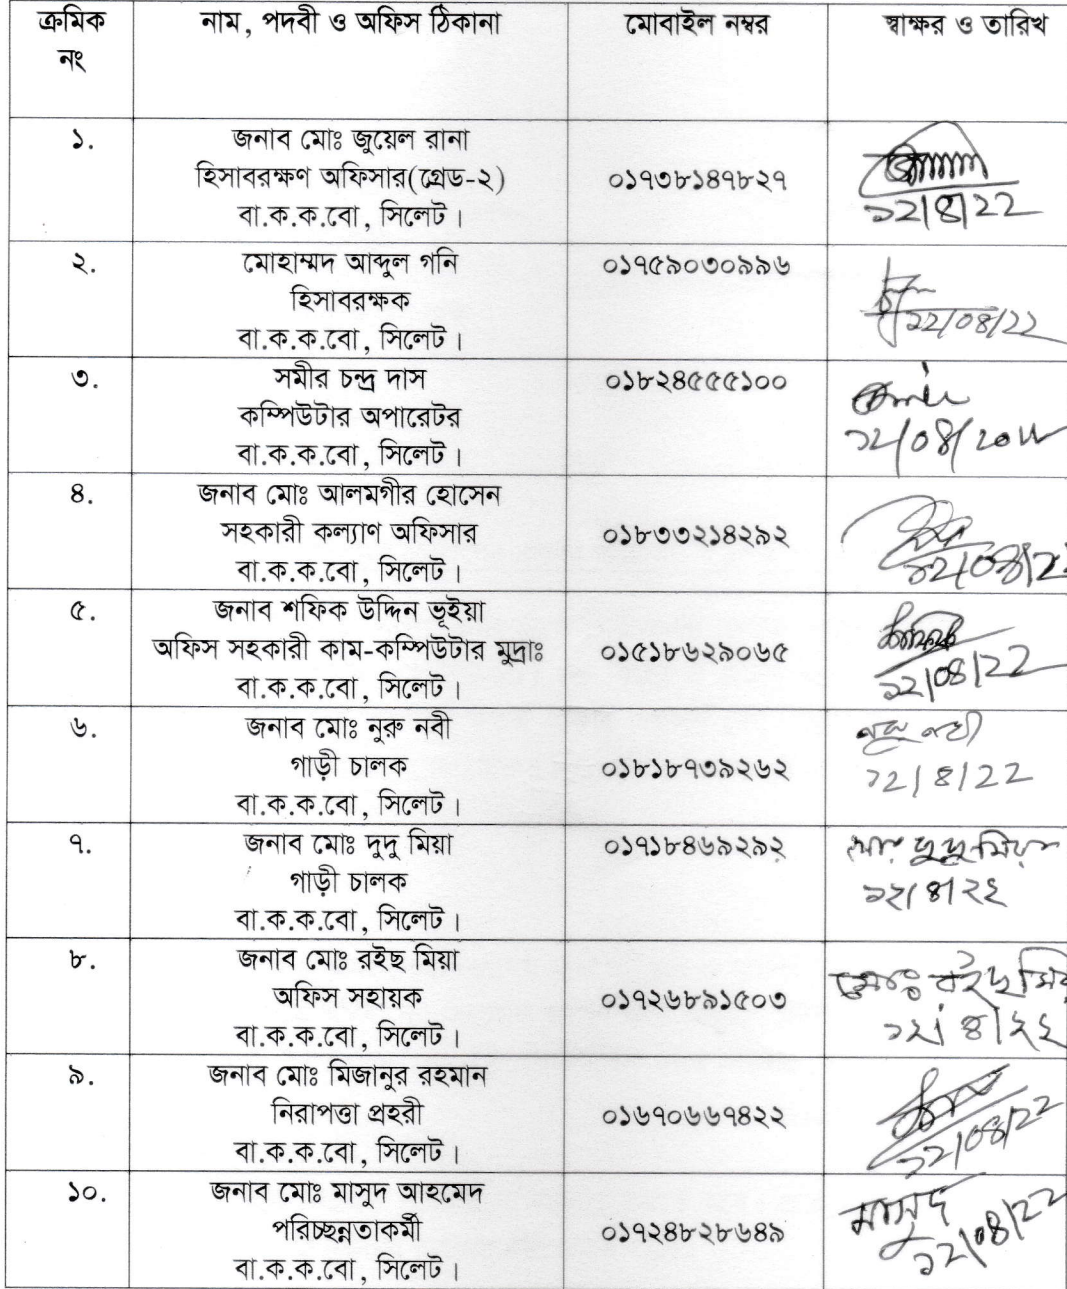 ক্রমিক নং
নাম, পদবী ও অফিস ঠিকানা
মোবাইল নম্বর
স্বাক্ষর ও তারিখ
১.
জনাব মোঃ জুয়েল রানা
হিসাবরক্ষণ অফিসার(গ্রেড-২)
বা.ক.ক.বো, সিলেট।
০১৭৩৮১৪৭৮২৭
১২/৪/২২
২.
মোহাম্মদ আব্দুল গনি
হিসাবরক্ষক
বা.ক.ক.বো, সিলেট।
০১৭৫৯০৩০৯৯৬
১২/০৪/২২
৩.
সমীর চন্দ্র দাস
কম্পিউটার অপারেটর
বা.ক.ক.বো, সিলেট।
০১৮২৪৫৫৫১০০
১২/০৪/২০২২
৪.
জনাব মোঃ আলমগীর হোসেন
সহকারী কল্যাণ অফিসার
বা.ক.ক.বো, সিলেট।
০১৮৩৩২১৪২৯২
১২/০৪/২২
৫.
জনাব শফিক উদ্দিন ভূইয়া
অফিস সহকারী কাম-কম্পিউটার মুদ্রাঃ
বা.ক.ক.বো, সিলেট।
০১৫১৮৬২৯০৬৫
১২/০৪/২২
৬.
জনাব মোঃ নুরু নবী
গাড়ী চালক
বা.ক.ক.বো, সিলেট।
০১৮১৮৭৩৯২৬২
নুরু নবী
১২/৪/২২
৭.
জনাব মোঃ দুদু মিয়া
গাড়ী চালক
বা.ক.ক.বো, সিলেট।
০১৭১৮৪৬৯২৯২
মোঃ দুদু মিয়া
১২/৪/২২
৮.
জনাব মোঃ রইছ মিয়া
অফিস সহায়ক
বা.ক.ক.বো, সিলেট।
০১৭২৬৮৯১৫০৩
মোঃ রইছ মিয়া
১২/৪/২২
৯.
জনাব মোঃ মিজানুর রহমান
নিরাপত্তা প্রহরী
বা.ক.ক.বো, সিলেট।
০১৬৭০৬৬৭৪২২
১২/০৪/২২
১০.
জনাব মোঃ মাসুদ আহমেদ
পরিচ্ছন্নতাকর্মী
বা.ক.ক.বো, সিলেট।
০১৭২৪৮২৮৬৪৯
মাসুদ
১২/০৪/২২